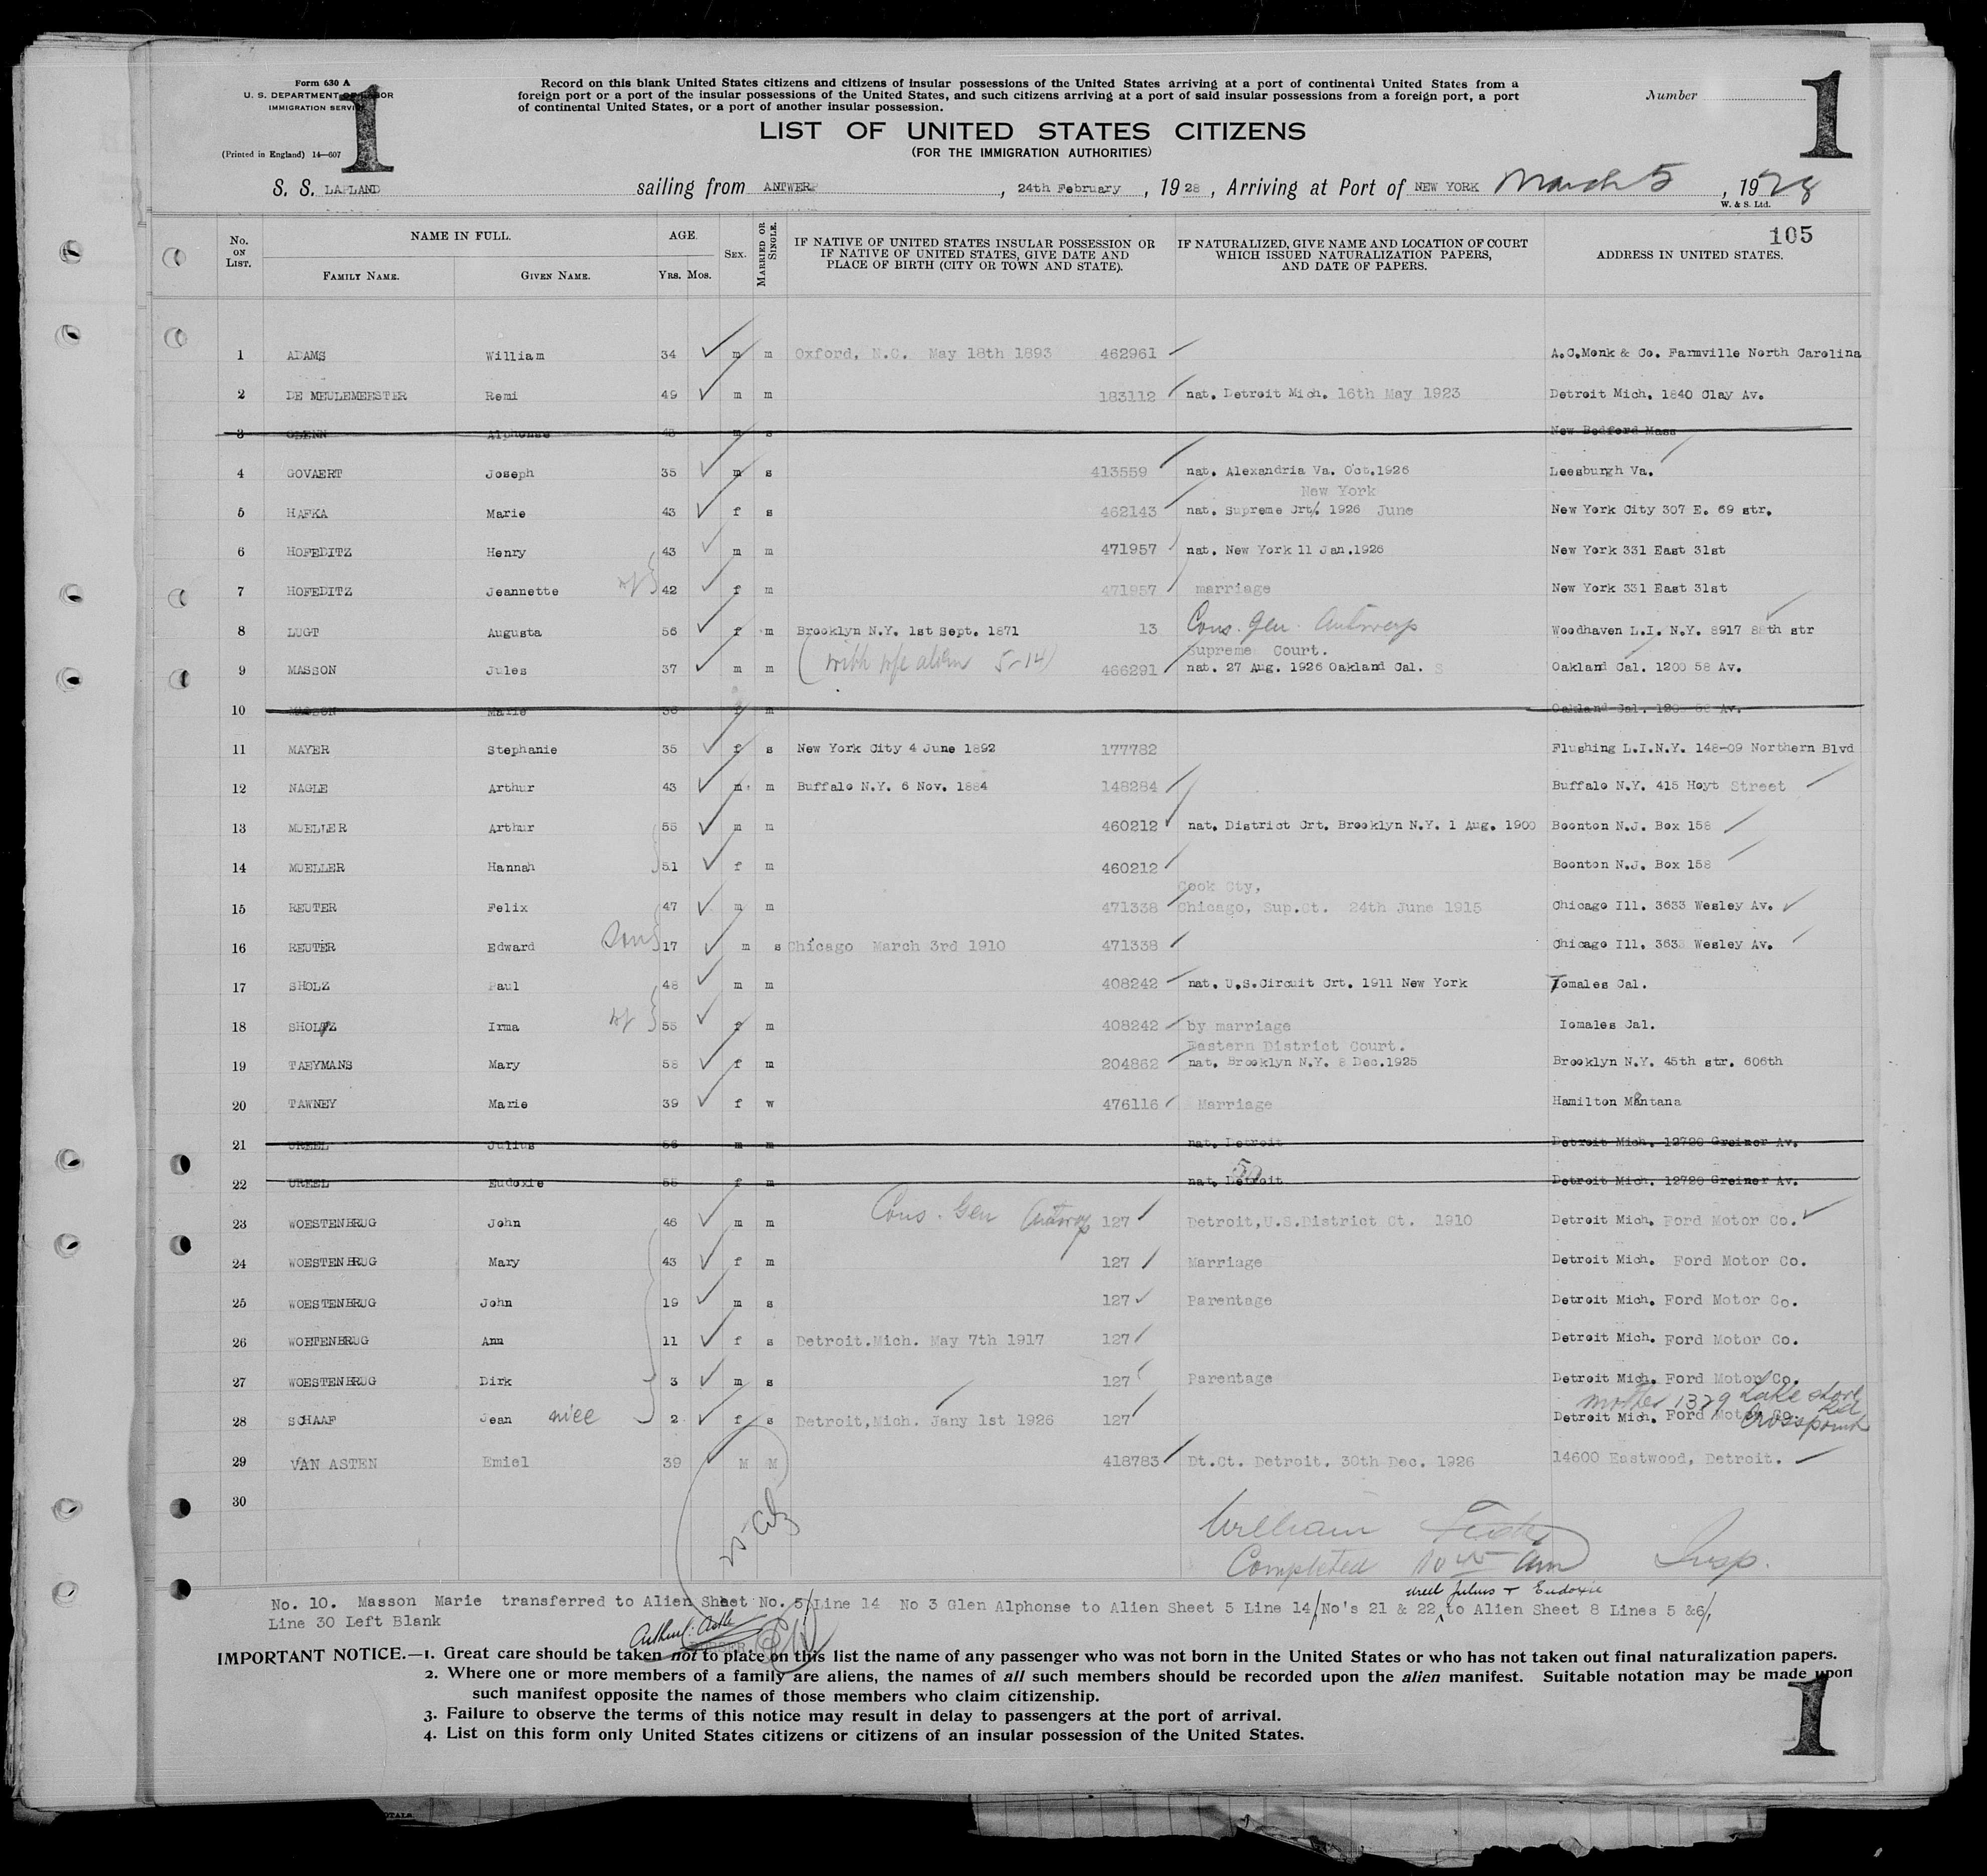 Form 630 A
U. S. DEPARTMENT OF LABOR
IMMIGRATION SERVICE
(Printed in England) 14—607
1
Record on this blank United States citizens and citizens of insular possessions of the United States arriving at a port of continental United States from a
foreign port or a port of the insular possessions of the United States, and such citizens arriving at a port of said insular possessions from a foreign port, a port
of continental United States, or a port of another insular possession.
Number
1
LIST OF UNITED STATES CITIZENS
(FOR THE IMMIGRATION AUTHORITIES)
S. S. LAPLAND sailing from ANTWERP, 24th February, 1928, Arriving at Port of NEW YORK March 5, 1928
W. & S. Ltd.
105
No. ON LIST. NAME IN FULL. FAMILY NAME. GIVEN NAME. AGE. YRS. MOS. SEX. MARRIED OR SINGLE. IF NATIVE OF UNITED STATES INSULAR POSSESSION OR IF NATIVE OF UNITED STATES, GIVE DATE AND PLACE OF BIRTH (CITY OR TOWN AND STATE). IF NATURALIZED, GIVE NAME AND LOCATION OF COURT WHICH ISSUED NATURALIZATION PAPERS, AND DATE OF PAPERS. ADDRESS IN UNITED STATES.
1 ADAMS William 34 m m Oxford, N.C. May 18th 1893 462961 A.C.Monk & Co. Farmville North Carolina
2 DE MEULEMEESTER Remi 49 m m 183112 nat. Detroit Mich. 16th May 1923 Detroit Mich. 1840 Clay Av.
3 GLENN Alphonse 43 m s New Bedford Mass
4 GOVAERT Joseph 35 m s 413559 nat. Alexandria Va. Oct.1926 Leesburgh Va.
New York
5 HAFKA Marie 43 f s 462143 nat. Supreme Crt. 1926 June New York City 307 E. 69 str.
6 HOFEDITZ Henry 43 m m 471957 nat. New York 11 Jan.1926 New York 331 East 31st
7 HOFEDITZ Jeannette wf 42 f m 471957 marriage New York 331 East 31st
8 LUGT Augusta 56 f m Brooklyn N.Y. 1st Sept. 1871 13 Cons. Gen. Antwerp Woodhaven L.I. N.Y. 8917 88th str
(with wfe alien 5-14) Supreme Court.
9 MASSON Jules 37 m m 466291 nat. 27 Aug. 1926 Oakland Cal. S Oakland Cal. 1200 58 Av.
10 MASSON Marie 36 f m Oakland Cal. 1200 58 Av.
11 MAYER Stephanie 35 f s New York City 4 June 1892 177782 Flushing L.I.N.Y. 148-09 Northern Blvd
12 NAGLE Arthur 43 m m Buffalo N.Y. 6 Nov. 1884 148284 Buffalo N.Y. 415 Hoyt Street
13 MUELLER Arthur 55 m m 460212 nat. District Crt. Brooklyn N.Y. 1 Aug. 1900 Boonton N.J. Box 158
14 MUELLER Hannah 51 f m 460212 Boonton N.J. Box 158
Cook Cty,
15 REUTER Felix 47 m m 471338 Chicago, Sup.Ct. 24th June 1915 Chicago Ill. 3633 Wesley Av.
16 REUTER Edward Son 17 m s Chicago March 3rd 1910 471338 Chicago Ill. 3633 Wesley Av.
17 SHOLZ Paul 48 m m 408242 nat. U.S.Circuit Crt. 1911 New York Tomales Cal.
18 SHOLTZ Irma wf 55 f m 408242 by marriage Iomales Cal.
Eastern District Court.
19 TAEYMANS Mary 58 f m 204862 nat. Brooklyn N.Y. 8 Dec.1925 Brooklyn N.Y. 45th str. 606th
20 TAWNEY Marie 39 f w 476116 Marriage Hamilton Montana
21 UREEL Julius 56 m m nat. Detroit Detroit Mich. 12720 Greiner Av.
22 UREEL Eudoxie 55 f m nat. Detroit Detroit Mich. 12720 Greiner Av.
23 WOESTENBRUG John 46 m m Cons. Gen Antwerp 127 Detroit,U.S.District Ct. 1910 Detroit Mich. Ford Motor Co.
24 WOESTENBRUG Mary 43 f m 127 Marriage Detroit Mich. Ford Motor Co.
25 WOESTENBRUG John 19 m s 127 Parentage Detroit Mich. Ford Motor Co.
26 WOETENBRUG Ann 11 f s Detroit.Mich. May 7th 1917 127 Detroit Mich. Ford Motor Co.
27 WOESTENBRUG Dirk 3 m s 127 Parentage Detroit Mich. Ford Motor Co.
mother 1329 Lake shore Rd
28 SCHAAF Jean niece 2 f s Detroit,Mich. Jany 1st 1926 127 Detroit Mich. Ford Motor Co.
29 VAN ASTEN Emiel 39 M M 418783 Dt.Ct. Detroit. 30th Dec. 1926 14600 Eastwood, Detroit.
30
William
Completed 10 45 am Insp.
Ureel Julius + Eudoxie
No. 10. Masson Marie transferred to Alien Sheet No. 5, Line 14 No 3 Glen Alphonse to Alien Sheet 5 Line 14, No's 21 & 22, to Alien Sheet 8 Lines 5 &6,
Line 30 Left Blank
PURSER
IMPORTANT NOTICE.—1. Great care should be taken not to place on this list the name of any passenger who was not born in the United States or who has not taken out final naturalization papers.
2. Where one or more members of a family are aliens, the names of all such members should be recorded upon the alien manifest. Suitable notation may be made upon
such manifest opposite the names of those members who claim citizenship.
3. Failure to observe the terms of this notice may result in delay to passengers at the port of arrival.
4. List on this form only United States citizens or citizens of an insular possession of the United States.
1